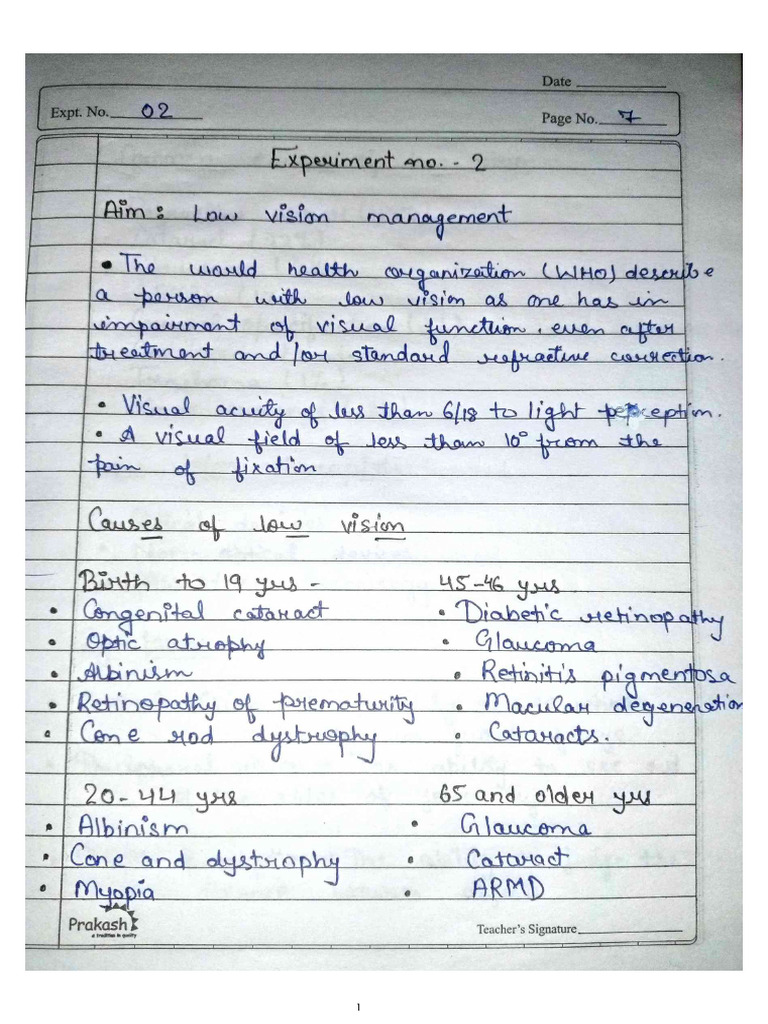 Date
Expt. No. 02
Page No. 7
Experiment no. - 2
Aim: Low vision management
• The world health organization (WHO) describe
a person with low vision as one has in
impairment of visual function. even after
treatment and /or standard refractive correction.
• Visual acuity of less than 6/18 to light perception.
• A visual field of less than 10° from the
pain of fixation
Causes of low vision
Birth to 19 yrs - 45-46 yrs
• Congenital cataract • Diabetic retinopathy
• Optic atrophy • Glaucoma
• Albinism • Retinitis pigmentosa
• Retinopathy of prematurity • Macular degeneration
• Cone rod dystrophy • Cataracts.
20-44 yrs 65 and older yrs
• Albinism • Glaucoma
• Cone and dystrophy • Cataract
• Myopia • ARMD
Prakash
a tradition in quality
Teacher's Signature
1